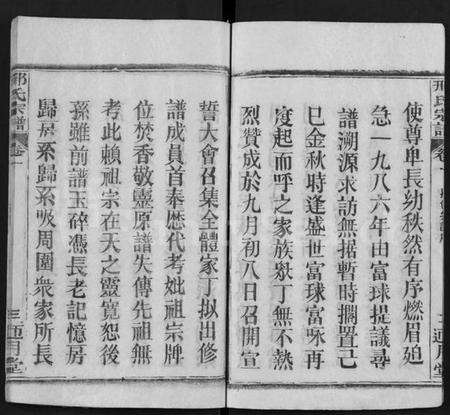 使尊卑長幼秩然有序燃眉廹
急一九八六年由富球提議尋
譜溯源求訪無据暫時擱置己
巳金秋時逢盛世富球富咏再
度起而呼之家族衆丁無不熱
烈賛成於九月初八日召開宣
誓大會召集全體家丁拟出修
譜成員首奉歷代考妣祖宗牌
位焚香敬靈原譜失傳先祖無
考此賴祖宗在天之靈寬恕後
孫雖前譜玉碎憑長老記憶房
歸房系歸系吸周圍衆家所長
氏宗譜
卷一
三
氏宗譜
卷一